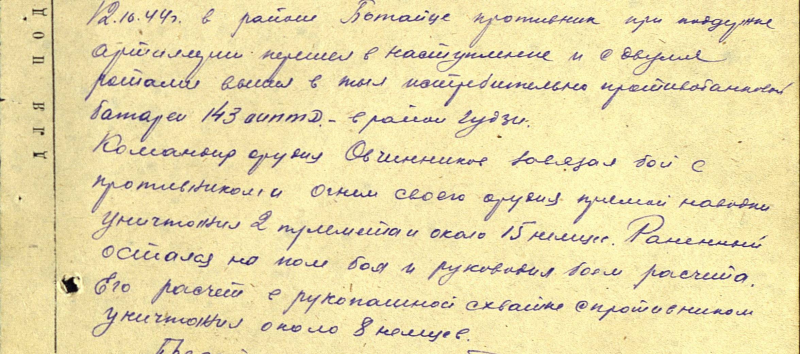 12.10.44г. в районе Ботайце противник при поддержке
артиллерии перешел в наступление и с двумя
ротами вышел в тыл истребительно противотанковой
батареи 143 оиптд - в район Гудзи.
Командир орудия Овчинников завязал бой с
противником и огнем своего орудия прямой наводки
уничтожил 2 пулемета и около 15 немцев. Раненный
остался на поле боя и руководил боем расчета.
Его расчет в рукопашной схватке с противником
уничтожил около 8 немцев.
ДЛЯ ПОД